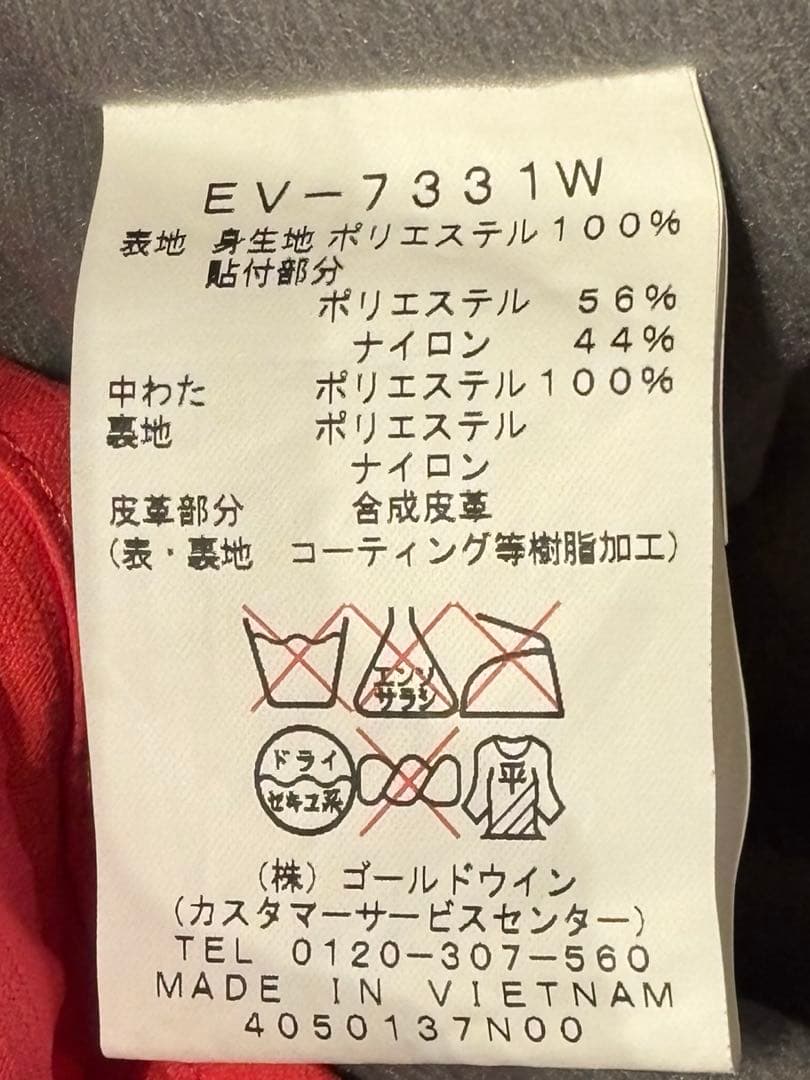 EV-7331W
表地 身生地 ポリエステル100%
貼付部分
ポリエステル 56%
ナイロン 44%
中わた ポリエステル100%
裏地 ポリエステル
ナイロン
皮革部分 合成皮革
(表・裏地 コーティング等樹脂加工)
エンソ
サラシ
ドライ
セキユ系
平
(株)ゴールドウイン
(カスタマーサービスセンター)
TEL 0120-307-560
MADE IN VIETNAM
4050137N00